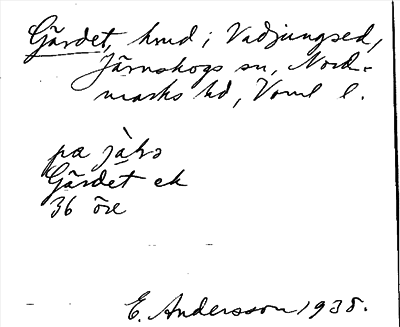 Gärdet, hmd i Vadjungsed,
Järnskogs sn, Nord-
marks hd, Vrml l.
pα jàʈə
Gärdet ek
36 öre
E. Andersson 1938.